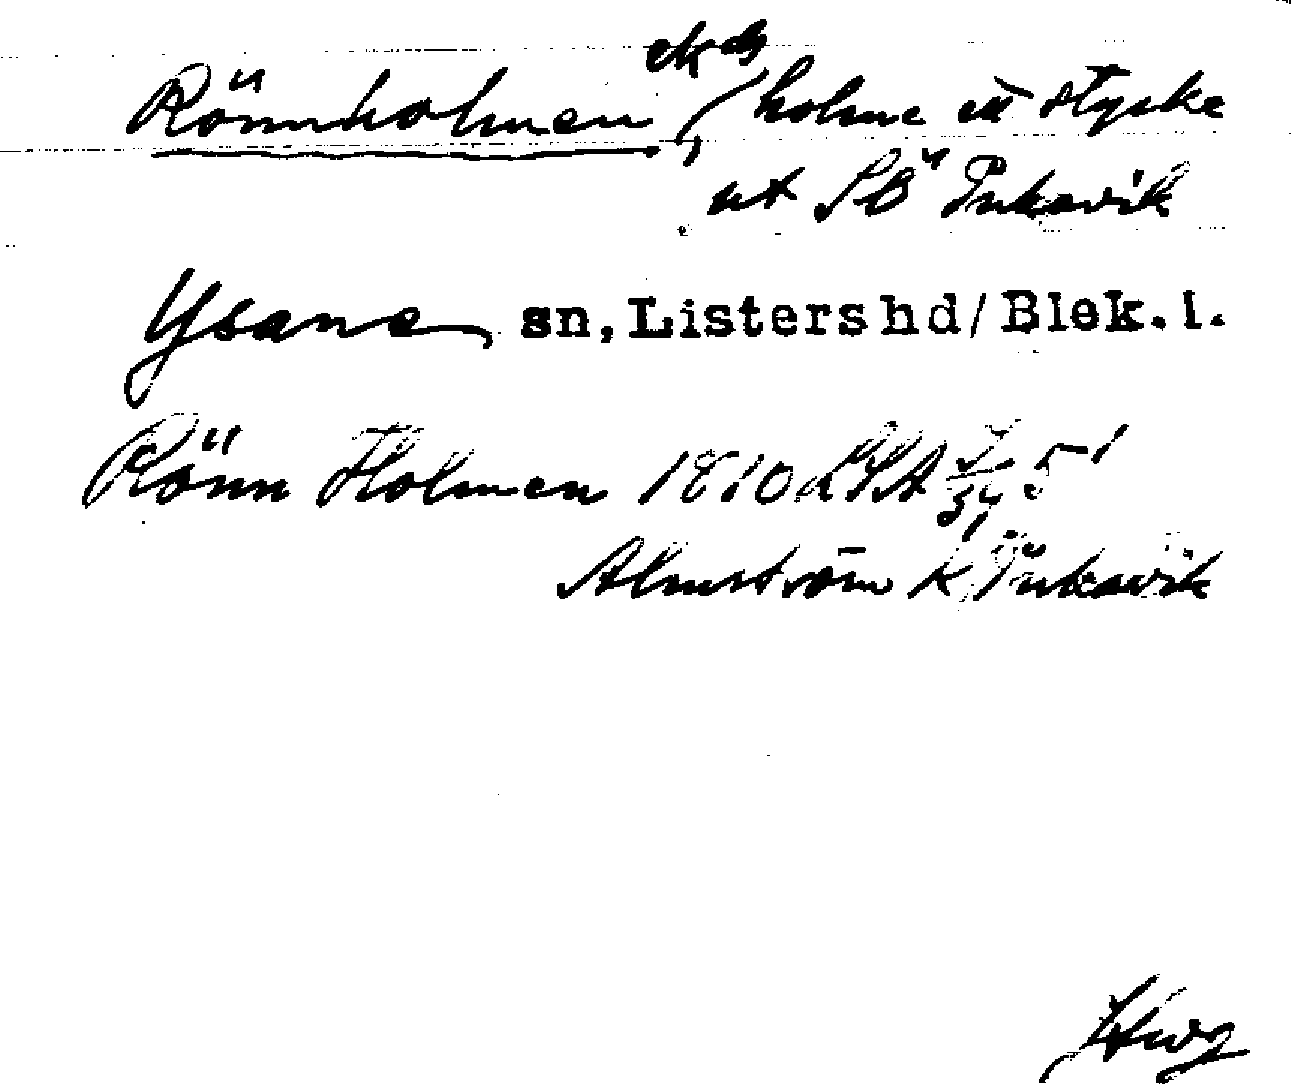 Rönnholmen, holme ett stycke
ut SO" Pukavik
Ysane sn, Listers hd/Blek. l.
Rönn Holmen 1810 LSA 51
Almström K, Pukavik